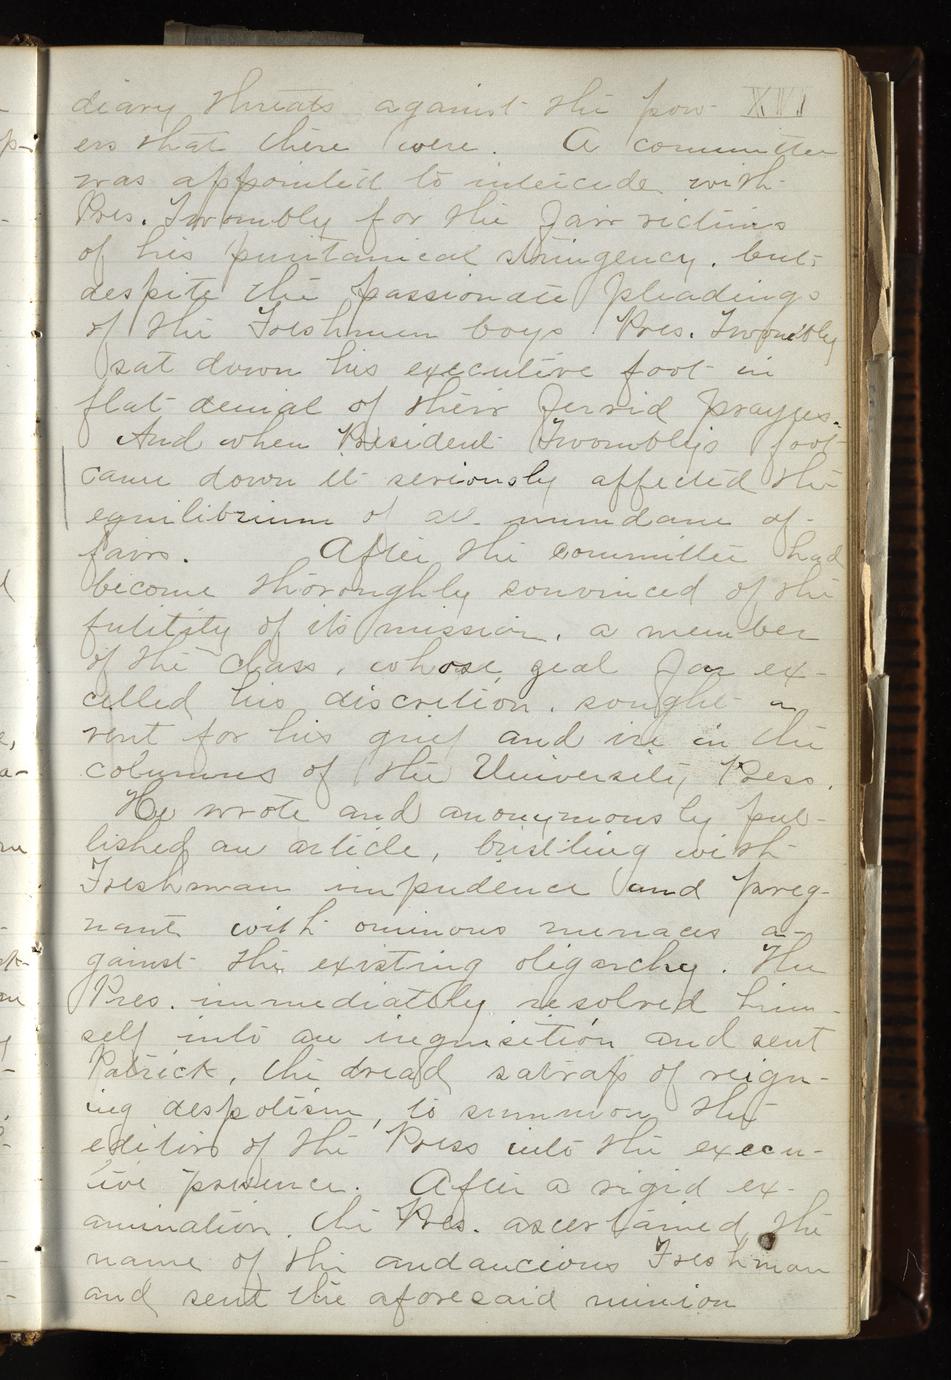 diary threats against the pow- XVI
ers that there were. A committee
was appointed to intercede with
Pres. Twombly for the fair victims
of his puritanical stringency, but
despite the passionate pleadings
of the Freshmen boys Pres. Twombly
sat down his executive foot in
flat denial of their fervid prayers.
And when President Twombly's foot
came down it seriously affected the
equilibrium of all mundane af-
fairs. After the committee had
become thoroughly convinced of the
futility of its mission, a member
of the class, whose zeal far ex-
celled his discretion, sought a
vent for his grief and ire in the
columns of the University Press.
He wrote and anonymously pub-
lished an article, bristling with
Freshman impudence and preg-
nant with ominous menaces a-
gainst the existing oligarchy. The
Pres. immediately resolved him-
self into an inquisition and sent
Patrick, the dread satrap of reign-
ing despotism, to summon the
editors of the Press into the execu-
tive presence. After a rigid ex-
amination, the Pres. ascertained the
name of the andaucious Freshman
and sent the aforesaid minion